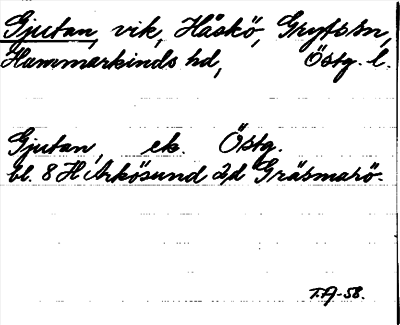 Gjutan, vik, Håskö, Gryts sn,
Hammarkinds hd, Östg. l.
Gjutan, ek. Östg.
bl. 8 H Arkösund 2,d Gräsmarö.
T.A-58.